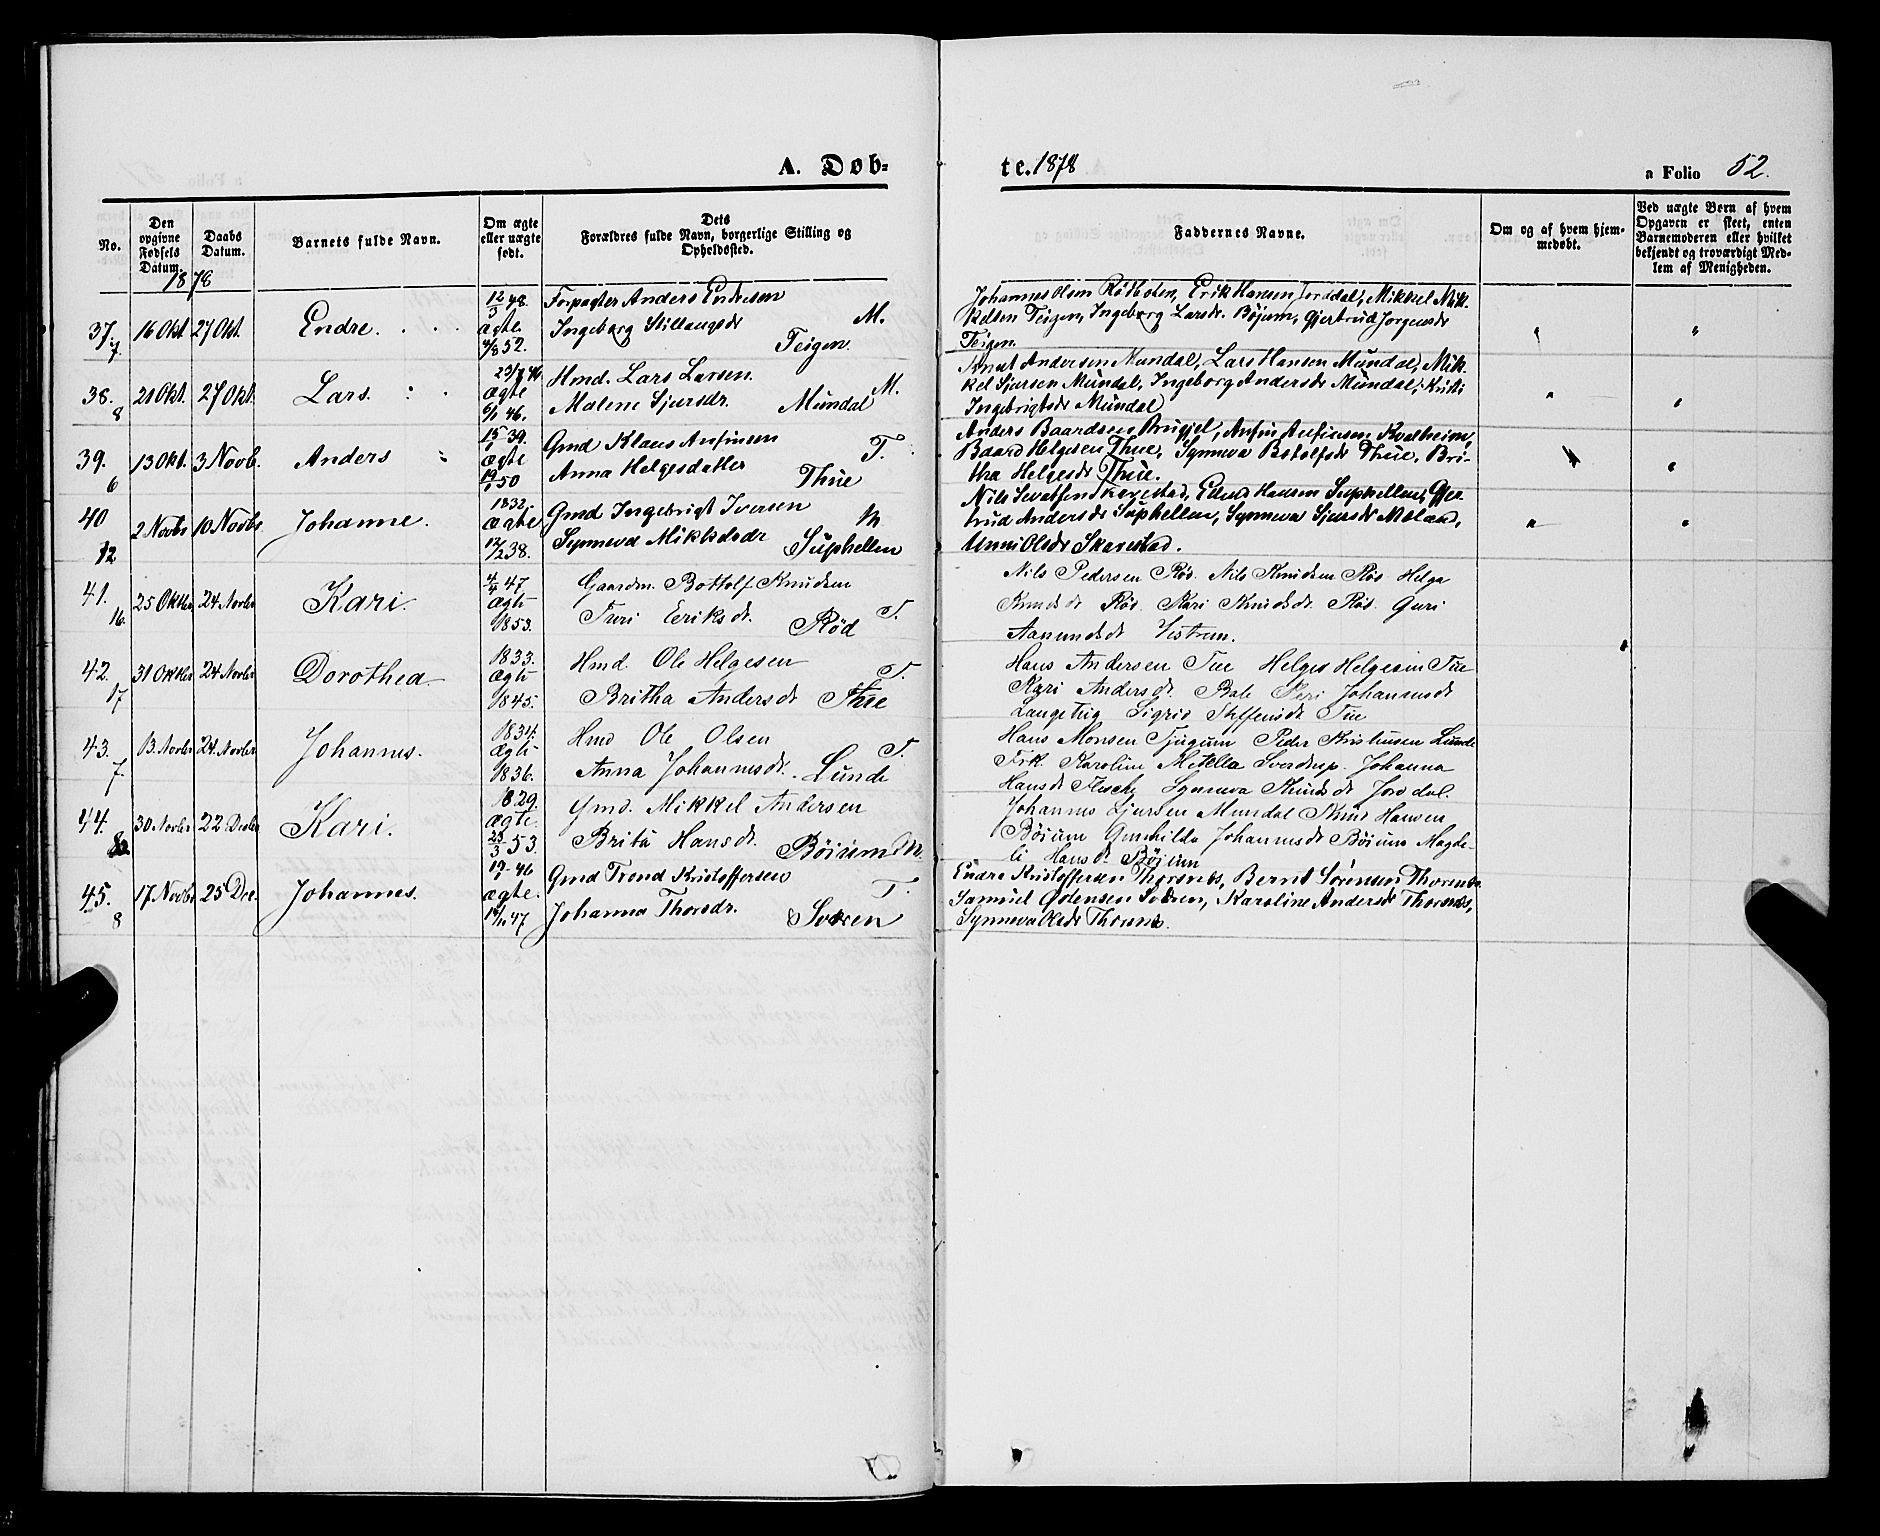 A. Døb-
te. 1878
a Folio 52.
No.
Den opgivne Fødsels Datum.
Daabs Datum.
Barnets fulde Navn.
Om ægte eller uægte født.
Dets Forældres fulde Navn, borgerlige Stilling og Opholdssted.
Faddernes Navne.
Om og af hvem hjemmedøbt.
Ved uægte Børn af hvem Opgaven er skeet, enten Barnemoderen eller hvilket bekjendt og troværdigt Medlem af Menigheden.
1878
37. 7 16 Okt. 27 Okt. Endre.
12/3 48. ægte 4/8 52.
Forpagter Anders Endresen
Ingeborg Stillaugsdr M.
Teigen.
Johannes Olsen Rødboten, Erik Hansen Jorddal, Mikkel Mik-
kelsen Teigen, Ingeborg Larsdr. Bøjum, Gjertrud Jørgensdr
Teigen.
38. 8 21 Okt. 27 Okt. Lars.
ægte 6/1 46.
Hmd. Lars Larsen
Malene Sjursdr. M.
Mundal
Andersen Mundal, Lars Hansen Mundal, Mik-
kel Sjursen Mundal, Ingeborg Andersdr Mundal, Kristi
Ingebrigtsdr Mundal
39. 6 13 Okt. 3 Novb. Anders
15/1 39. ægte 19/1 50
Gmd Klaus Anfinsen
Anna Helgesdatter T.
Thue
Anders Baardsen Anfin Anfinsen, Kvalheim,
Baard Helgesen Thue, Synneva Botolfsdr Thue, Bri-
tha Helgesdr Thue.
40 12 2 Novbr 10 Novbr Johanne.
1832. ægte 12/2 38.
Gmd Ingebrigt Iversen
Synneva Mikkelsdr M
Suphellen
Nils Skarestad, Hansen Suphellen, Gjer-
trud Andersdr Suphellen, Synneva Sjursdr Meland,
Unni Olsdr Skarestad.
41. 16. 25 Oktbr 24 Novbr Kari.
4/4 47 ægte 1853.
Gaardm. Bottolf Knudsen
Turi Eriksdr. T.
Rød
Nils Pedersen Røs. Nils Knudsen Røs Helga
Knudsdr Røs. Kari Knudsdr. Røs. Guri
Aamundsdr Vestrem.
42. 17 31 Oktbr 24 Novbr Dorothea
1833. ægte 1845.
Hmd. Ole Helgesen
Britha Andersdr T.
Thue
Hans Andersen Tue Helges Helgesen Tue
Kari Andersdr. Bale Johannesdr
Sigrid Steffensdr Tue
43. 7. 13 Novbr 24 Novbr Johannes.
1834. ægte 1836.
Hmd Ole Olsen
Anna Johannesdr. T.
Lunde
Hans Monsen Tjugum Peder Kristensen Lunde
Frk Karoline Metella Sverdrup. Johanna
Hansdr Flesche Synneva Knudsdr Jorddal.
44. 30 Novbr 22 Decbr Kari.
1829. ægte. 23/3 53.
Gmd. Mikkel Andersen
Brita Hansdr.
Bøium M.
Johannes Sjursen Mundal Knud Hansen
Bøium Gunhilda Johannesdr Bøium Magde-
li Hansdr Bøium
45. 8 17 Novbr 25 Dec. Johannes.
ægte.
Gmd Trond Kristoffersen
Johanna Thorsdr. T.
Sværen
Endre Kristoffersen Thorsnes, Bernt Sørensen Thorsnes
Samuel Sværen, Karoline Andersdr Thorsnes,
Synneva Olsdr Thorsnes.